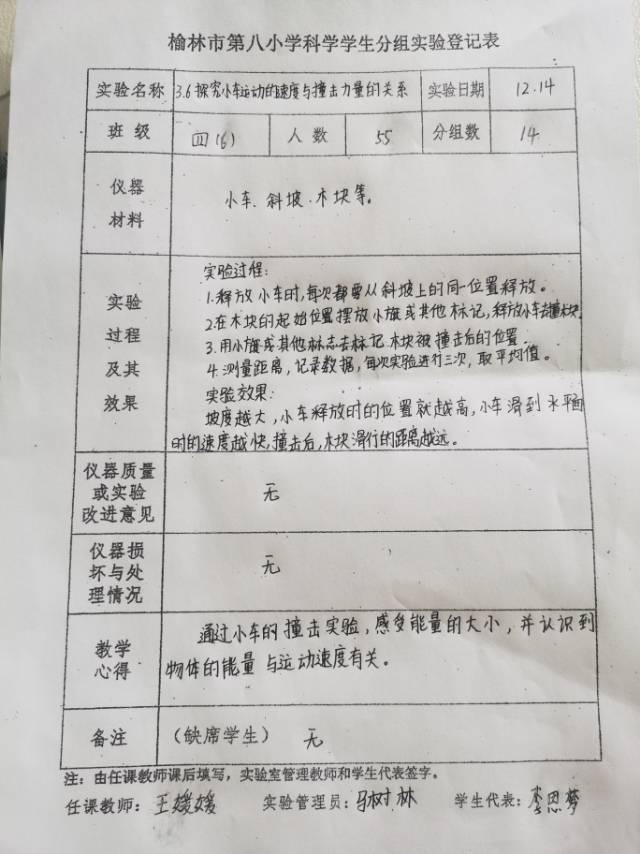 榆林市第八小学科学学生分组实验登记表
实验名称 3.6探究小车运动的速度与撞击力量的关系 实验日期 12.14
班 级 四(6) 人 数 55 分组数 14
仪器
材料
小车、斜坡、木块等。
实验
过程
及其
效果
实验过程:
1.释放小车时,每次都要从斜坡上的同一位置释放。
2.在木块的起始位置摆放小旗或其他标记,释放小车去撞木块.
3.用小旗或其他标志去标记木块被撞击后的位置.
4.测量距离,记录数据,每次实验进行三次,取平均值。
实验效果:
坡度越大,小车释放时的位置就越高,小车滑到水平面
时的速度越快,撞击后,木块滑行的距离越远。
仪器质量
或实验
改进意见
无
仪器损
坏与处
理情况
无
教学
心得
通过小车的撞击实验,感受能量的大小,并认识到
物体的能量与运动速度有关。
备注 (缺席学生) 无
注:由任课教师课后填写,实验室管理教师和学生代表签字。
任课教师:王媛媛 实验管理员:马树林 学生代表:李恩梦